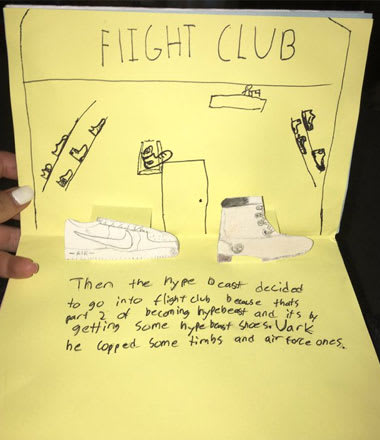 FlIGHT CLUB
Then the hype beast decided
to go into flight club because thats
part 2 of becoming hypebeast and its by
getting some hypebeast shoes.
he copped some timbs and air force ones.